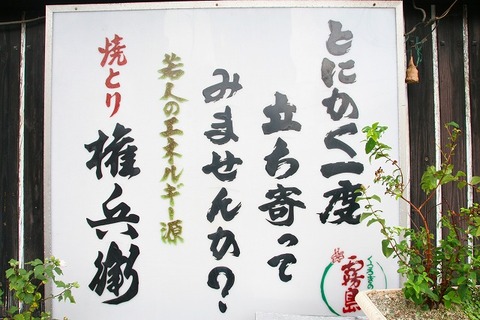 とにかく一度
立ち寄って
みませんか?
若人のエネルギー源
焼とり
権兵衛
くつろぎの
霧島